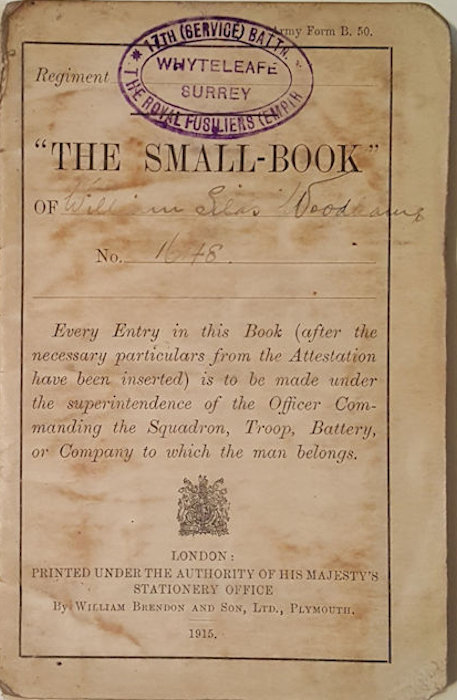 Army Form B. 50.
* 17TH (SERVICE) BATTN. *
WHYTELEAFE
SURREY
THE ROYAL FUSILIERS (EMPIR
Regiment
"THE SMALL-BOOK"
OF William Silas
No. 1648.
Every Entry in this Book (after the
necessary particulars from the Attestation
have been inserted) is to be made under
the superintendence of the Officer Com-
manding the Squadron, Troop, Battery,
or Company to which the man belongs.
LONDON:
PRINTED UNDER THE AUTHORITY OF HIS MAJESTY'S
STATIONERY OFFICE
By WILLIAM BRENDON AND SON, LTD., PLYMOUTH.
1915.